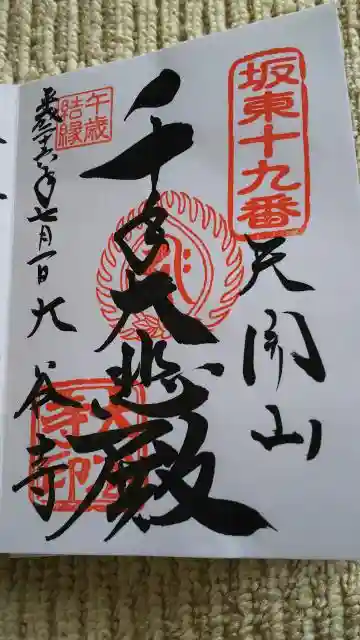 坂東十九番
天開山
千手大悲殿
午歳
結縁
平成二十六年七月一日
大谷寺
大谷
寺印